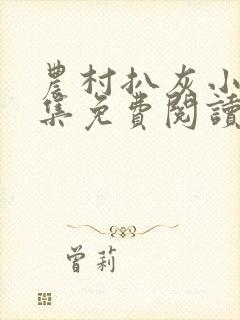 農村扒灰小
集免費閱讀
曾莉